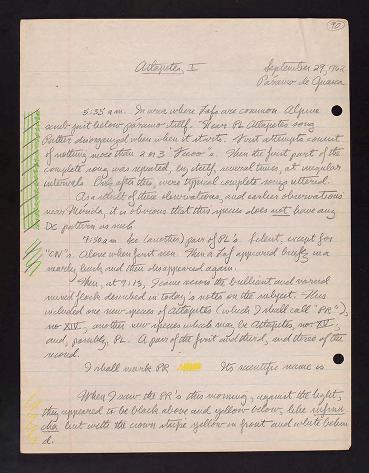 90
Atlapetes, I
September 29, 1964
Páramo de Guasca
5:35 a.m. In area where Lafs are common. Alpine
scrub just below páramo itself. Hear PL Atlapetes song
Rather disorganized when when it starts. First attempts consist
of nothing more than 2 or 3 "s. Then the first part of the
complete song was repeated, by itself, several times, at regular
intervals. Only after this, were typical complete songs uttered.
As a result of these observations, and earlier observations
near Mérida, it is obvious that this species does not have any
DC pattern as such.
7:30 a.m. See (another) pair of PL's. Silent, except for
"CN"s. Alone when first seen. Then a Laf appeared briefly in a
nearby bush and then disappeared again.
Then, at 9:15, I came across the brilliant and varied
mixed flock described in today's notes on the subject. This
included one new species of Atlapetes (which I shall call "PR"),
no XIV, another new species which may be Atlapetes, no XV,
and, possibly, PL. A pair of the first and third, and three of the
second.
I shall mark PR Its scientific name is
When I saw the PR's this morning, against the light,
they appeared to be black above and yellow below, like
but with the crown stripe yellow in front and white behin
d.